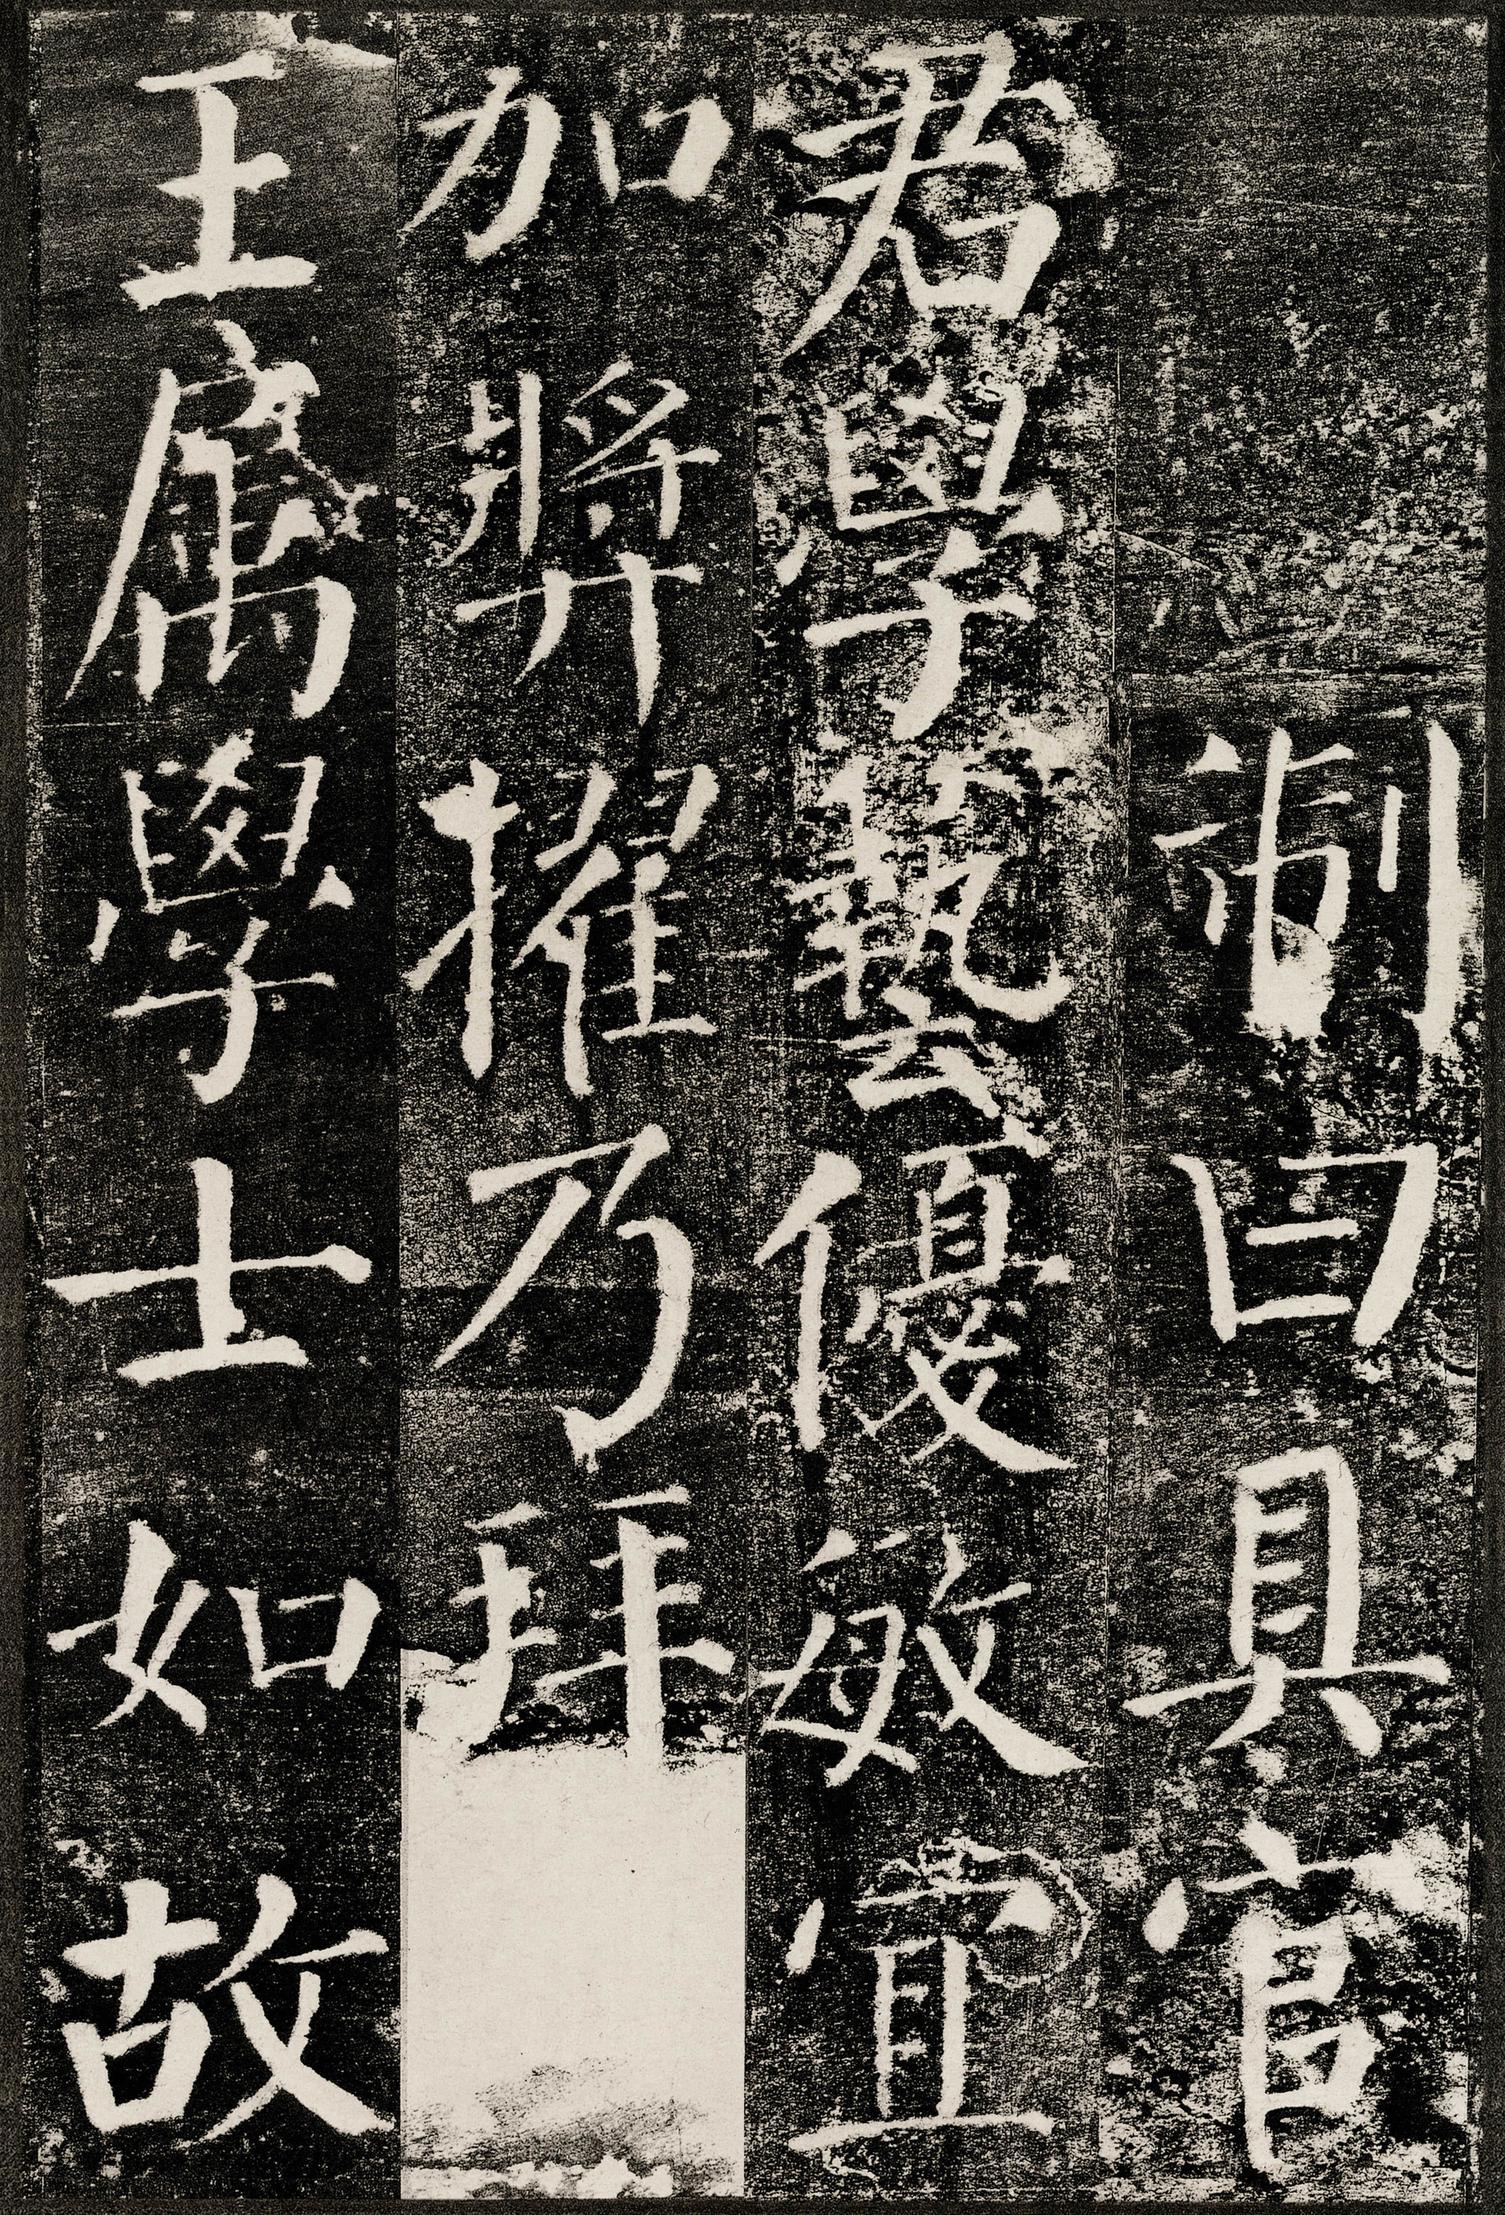 制曰具官
君學藝優敏宜
加奬擢乃拜
王属學士如故